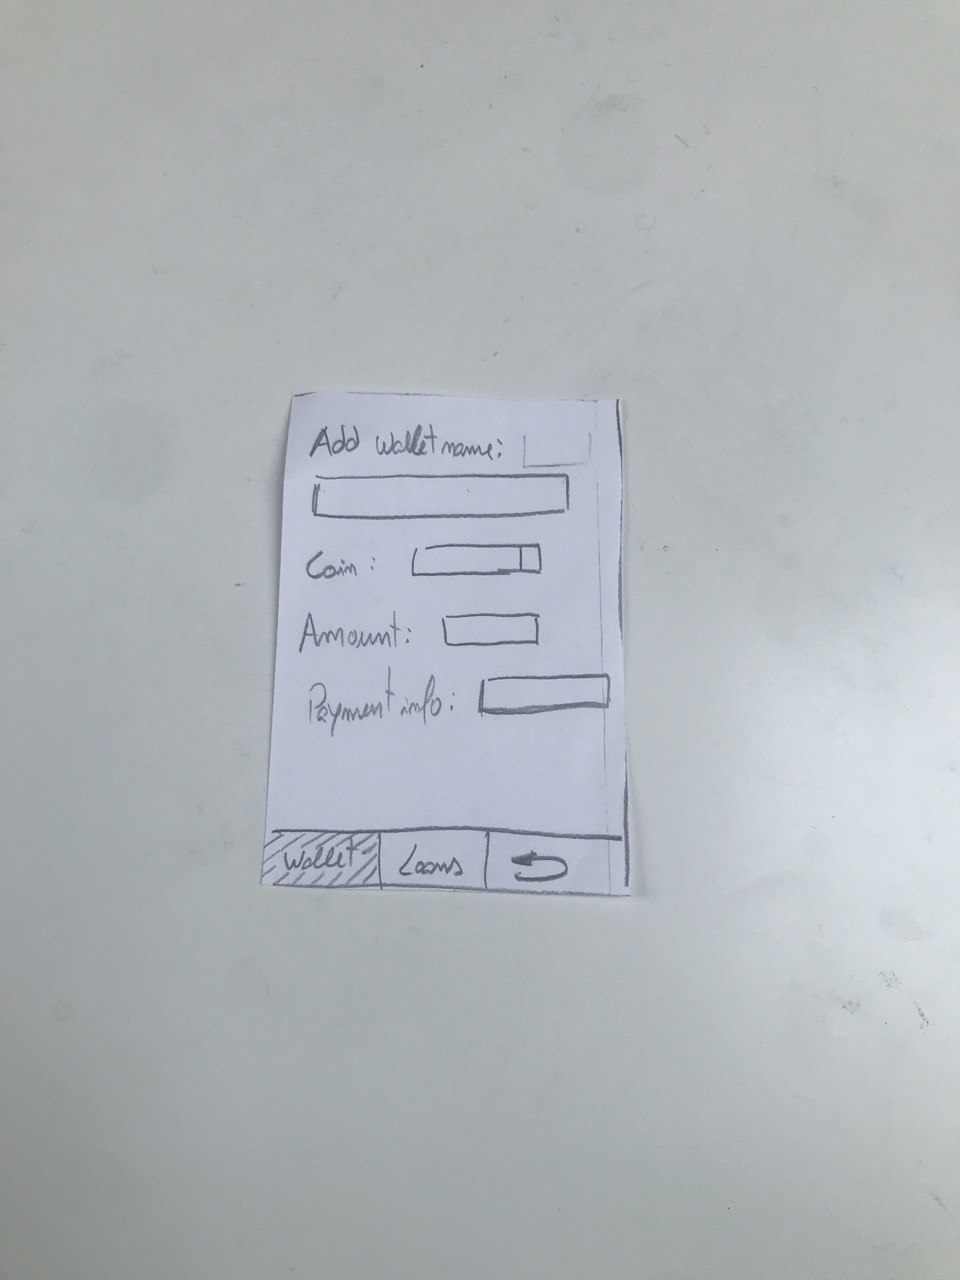 Add Wallet name:
Coin:
Amount:
Payment info:
Wallet Loans